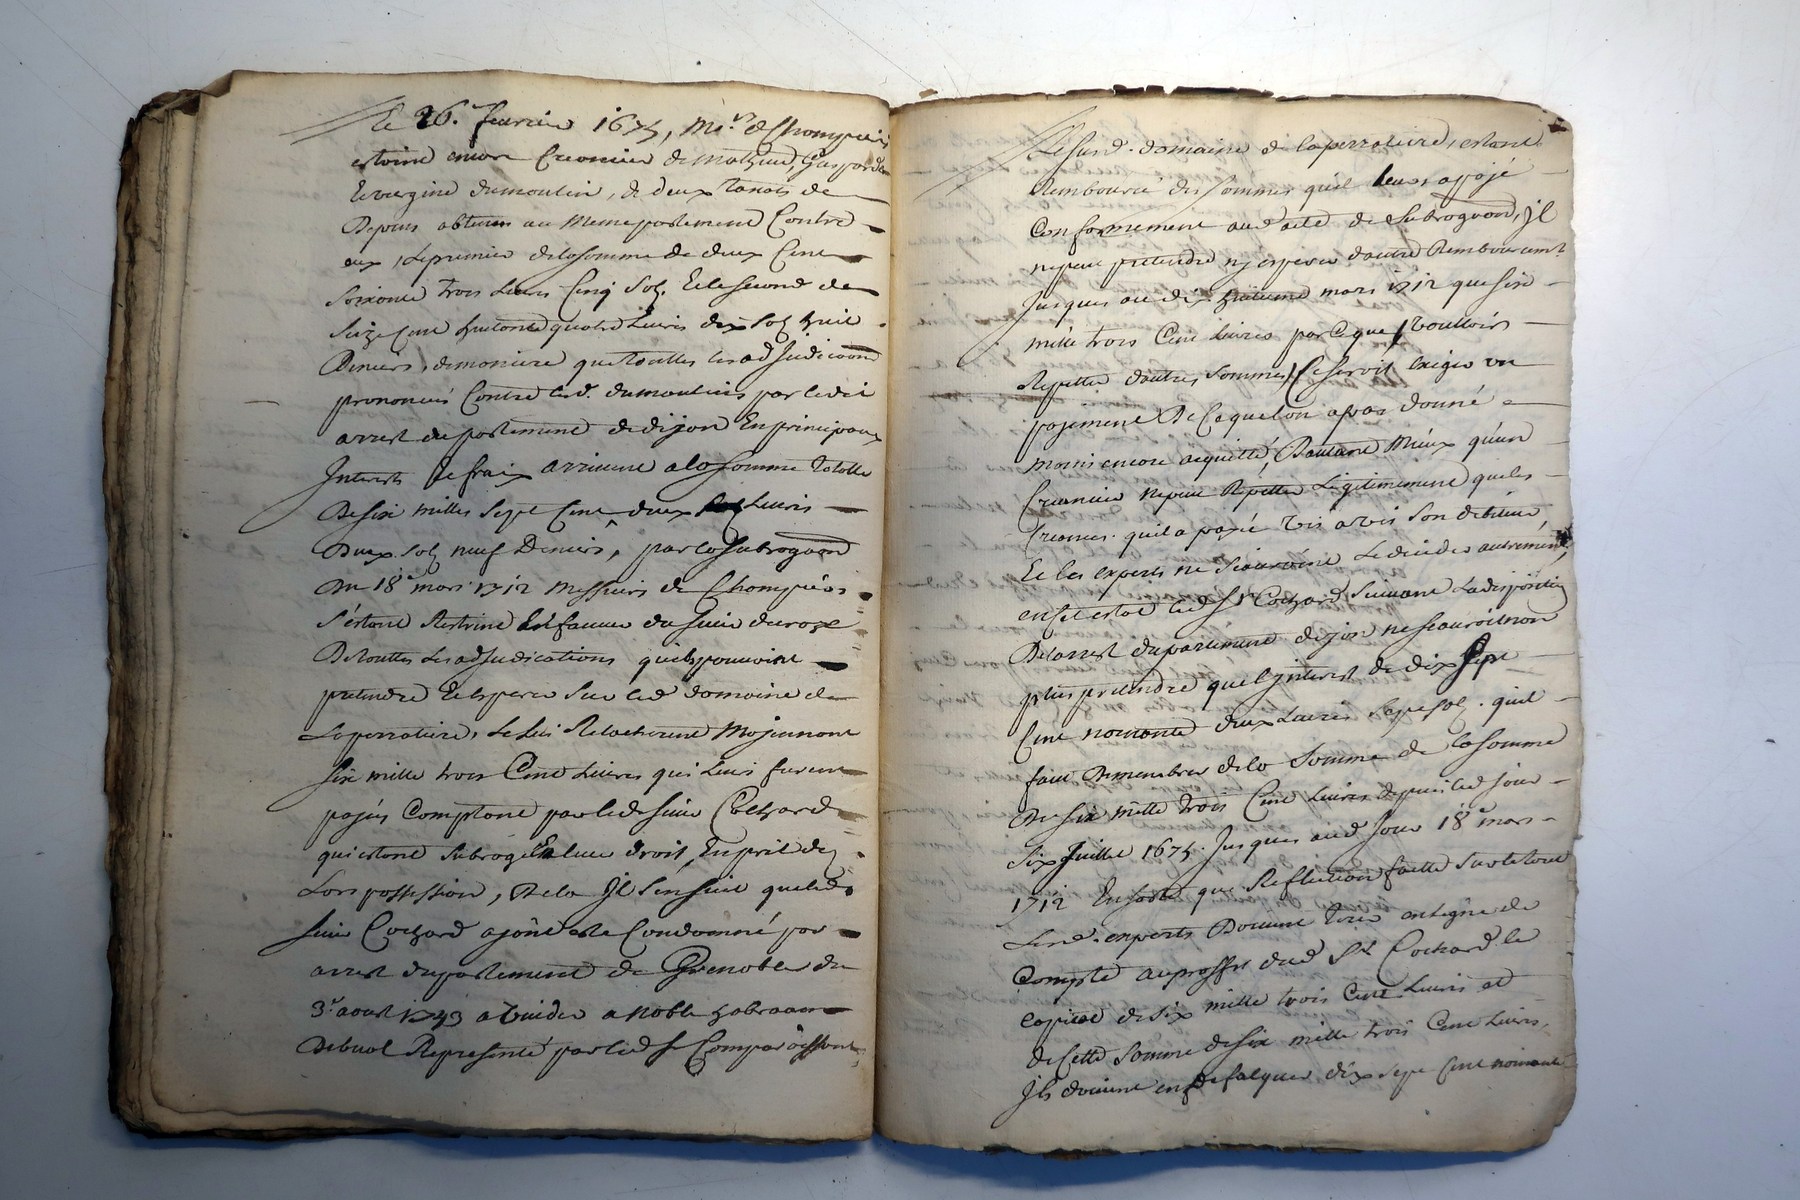 Le 26.e feurier 1675, Mrs. de Chompuis
estoint encore Creancier de mathieu, Gaspard
Et vergine dumoulin, de deux tanots de
Depens obtenus au Meme parlement Contre
eux, Le premier de la somme de deux Cent
soixante trois Livres Cinq Solz. Et le second de
Seize Cent huitante quatre Livres dix solz huit
Deniers, de maniere que touttes les adjudicaons
prononcées Contre lesd. dumoulins par ledit
arrest du parlement de dijon En principaux
Interests et fraix arrivent a la somme totalle
De six milles Sept Cent deux Livres
Deux Solz neuf Deniers, par la subrogaon
Du 18e mars 1712 Messieurs de Chompuis
s'estant Restraint En faveur du sieur
De touttes Les adjudications quils pouvoint
pretendre Et esperer Sur led domaine de
La perratiere, Le lui Relacherent Mojennant
six mille trois Cent Livres qui Leurs furent
pajés Comptant par led sieur Cochard
qui estant subrogé En leur droit, En prit dez
Lors possession, De la Jl s'ensuit que led
sieur Cochard ajant esté Condamné par
arrest du parlement de Grenoble du
3e. aoust 1743 a vuider a noble
Debual Representé par led Sr Comparoissant
Le susd. domaine de laperratiere, estant
Remboursé des sommes quil Leurs a pajé
Conformement aud acte de Subrogaon, Jl
ne peut pretendre nj esperer dautre Remboursemt.
Jusques au dix huitieme mars 1712 que six
mille trois Cent Livres parceque Vouloir
Repetter dautres Sommes, Ce seroit Exiger un
pajement De Ce que lon a pas donné
moins encore acquitté, Dautant Mieux qu'un
Creancier ne peut Repetter Legitimement que les
Creances quil a pajé vis a vis son debiteur,
Et les experts ne scauroint Le decider autrement,
en Cet estat led Sr Cochard suivant La disposition
De larrest du parlement dejon ne scauroit non
plus pretendre que l'jnterest de dix sept
Cent nonante deux Livres Sept solz. quil
faut Demembrer de la Somme de la somme
De six mille trois Cent Livres depuis led jour
six Juillet 1675. Jusques aud Jour 18e mars
1712 En sorte que Reflection faitte sur le tout
Lesd. experts Doivent tirer en ligne de
Compte au proffit dud Sr Cochard le
capital de six mille trois Cent Livres et
de Cette Somme de six mille trois Cent Livres,
Jls doivent en defalquer dix sept Cent nonante